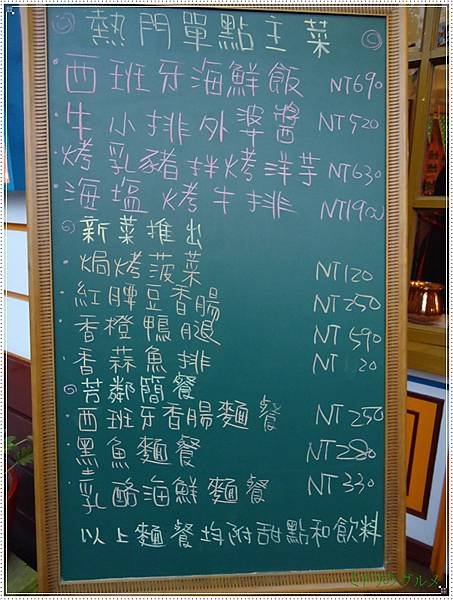 熱門單點主菜
西班牙海鮮飯 NT690
牛小排外婆醬 NT520
烤乳豬拌烤洋芋 NT630
海塩烤牛排 NT1900
新菜推出
焗烤菠菜 NT120
紅脾豆香腸 NT250
香橙鴨腿 NT590
香蒜魚排 NT 20
芳鄰簡餐
西班牙香腸麵餐 NT250
墨魚麵餐 NT280
乳酪海鮮麵餐 NT330
以上麵餐均附甜點和飲料